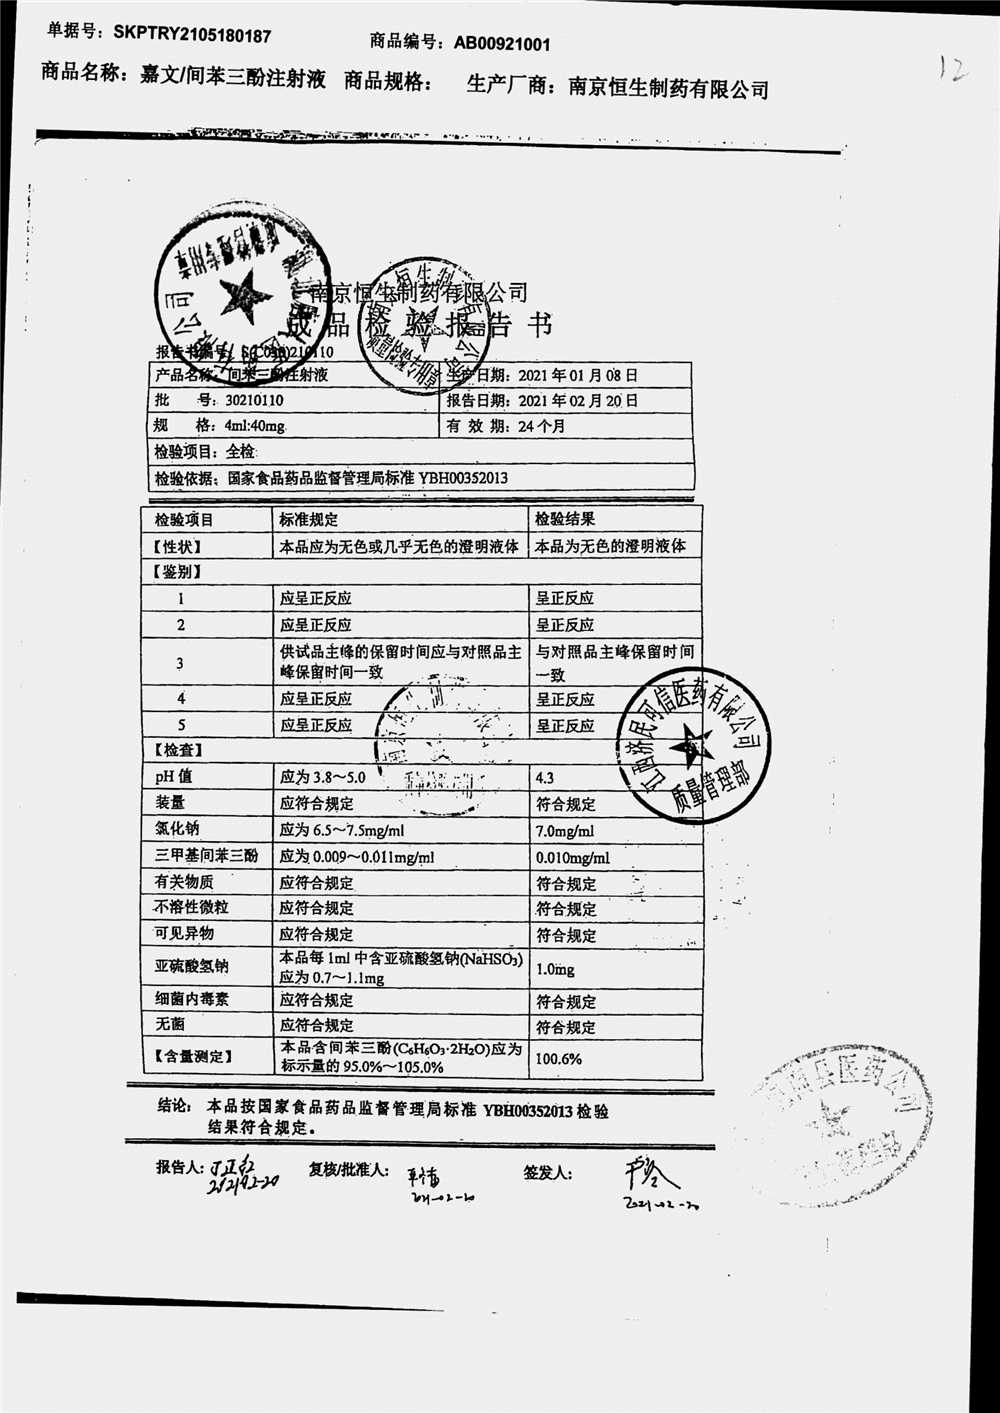 单据号：SKPTRY2105180187
商品编号：AB00921001
12
商品名称：嘉文/间苯三酚注射液 商品规格： 生产厂商：南京恒生制药有限公司
南京恒生制药有限公司
成品检验报告书
报告书编号：
产品名称：间苯三酚注射液 生产日期：2021年01月08日
批 号：30210110 报告日期：2021年02月20日
规 格：4ml:40mg 有 效 期：24个月
检验项目：全检
检验依据：国家食品药品监督管理局标准 YBH00352013
检验项目 标准规定 检验结果
【性状】 本品应为无色或几乎无色的澄明液体 本品为无色的澄明液体
【鉴别】
1 应呈正反应 呈正反应
2 应呈正反应 呈正反应
3 供试品主峰的保留时间应与对照品主 与对照品主峰保留时间
峰保留时间一致 一致
4 应呈正反应 呈正反应
5 应呈正反应 呈正反应
【检查】
pH值 应为3.8～5.0 4.3
装量 应符合规定 符合规定
氯化钠 应为6.5～7.5mg/ml 7.0mg/ml
三甲基间苯三酚 应为0.009～0.011mg/ml 0.010mg/ml
有关物质 应符合规定 符合规定
不溶性微粒 应符合规定 符合规定
可见异物 应符合规定 符合规定
亚硫酸氢钠 本品每1ml中含亚硫酸氢钠(NaHSO₃) 1.0mg
应为0.7～1.1mg
细菌内毒素 应符合规定 符合规定
无菌 应符合规定 符合规定
【含量测定】 本品含间苯三酚(C₆H₆O₃·2H₂O)应为 100.6%
标示量的95.0%～105.0%
江西济民可信医药有限公司
质量管理部
结论： 本品按国家食品药品监督管理局标准 YBH00352013检验
结果符合规定。
报告人： 复核/批准人： 签发人：
2021-02-20 2021-02-20 2021-02-20
县医药公司